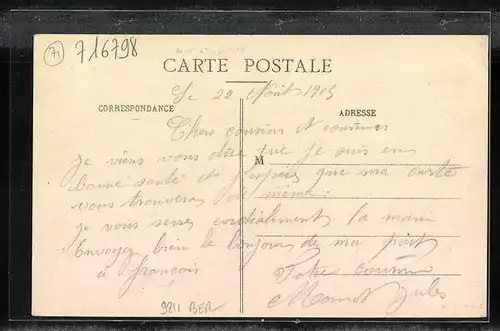 (71) 716798
CARTE POSTALE
Le 22 Août 1915
CORRESPONDANCE
ADRESSE
Chers cousins et cousines
je viens vous dire que je suis en
M
bonne santé et j'espère que ma carte
vous trouveras de même.
je vous serre cordialement la main
Envoyez bien le bonjour de ma part
à françois
Votre cousin
Jules
9811 BER